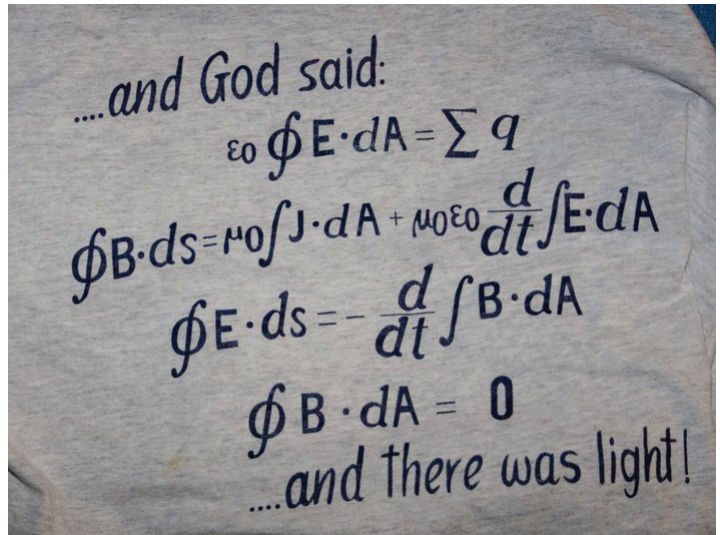 ....and God said:
εo ∮ E·dA = ∑ q
∮B·ds = μo∫J·dA + μoεo d/dt ∫E·dA
∮E·ds = - d/dt ∫B·dA
∮ B·dA = 0
....and there was light!